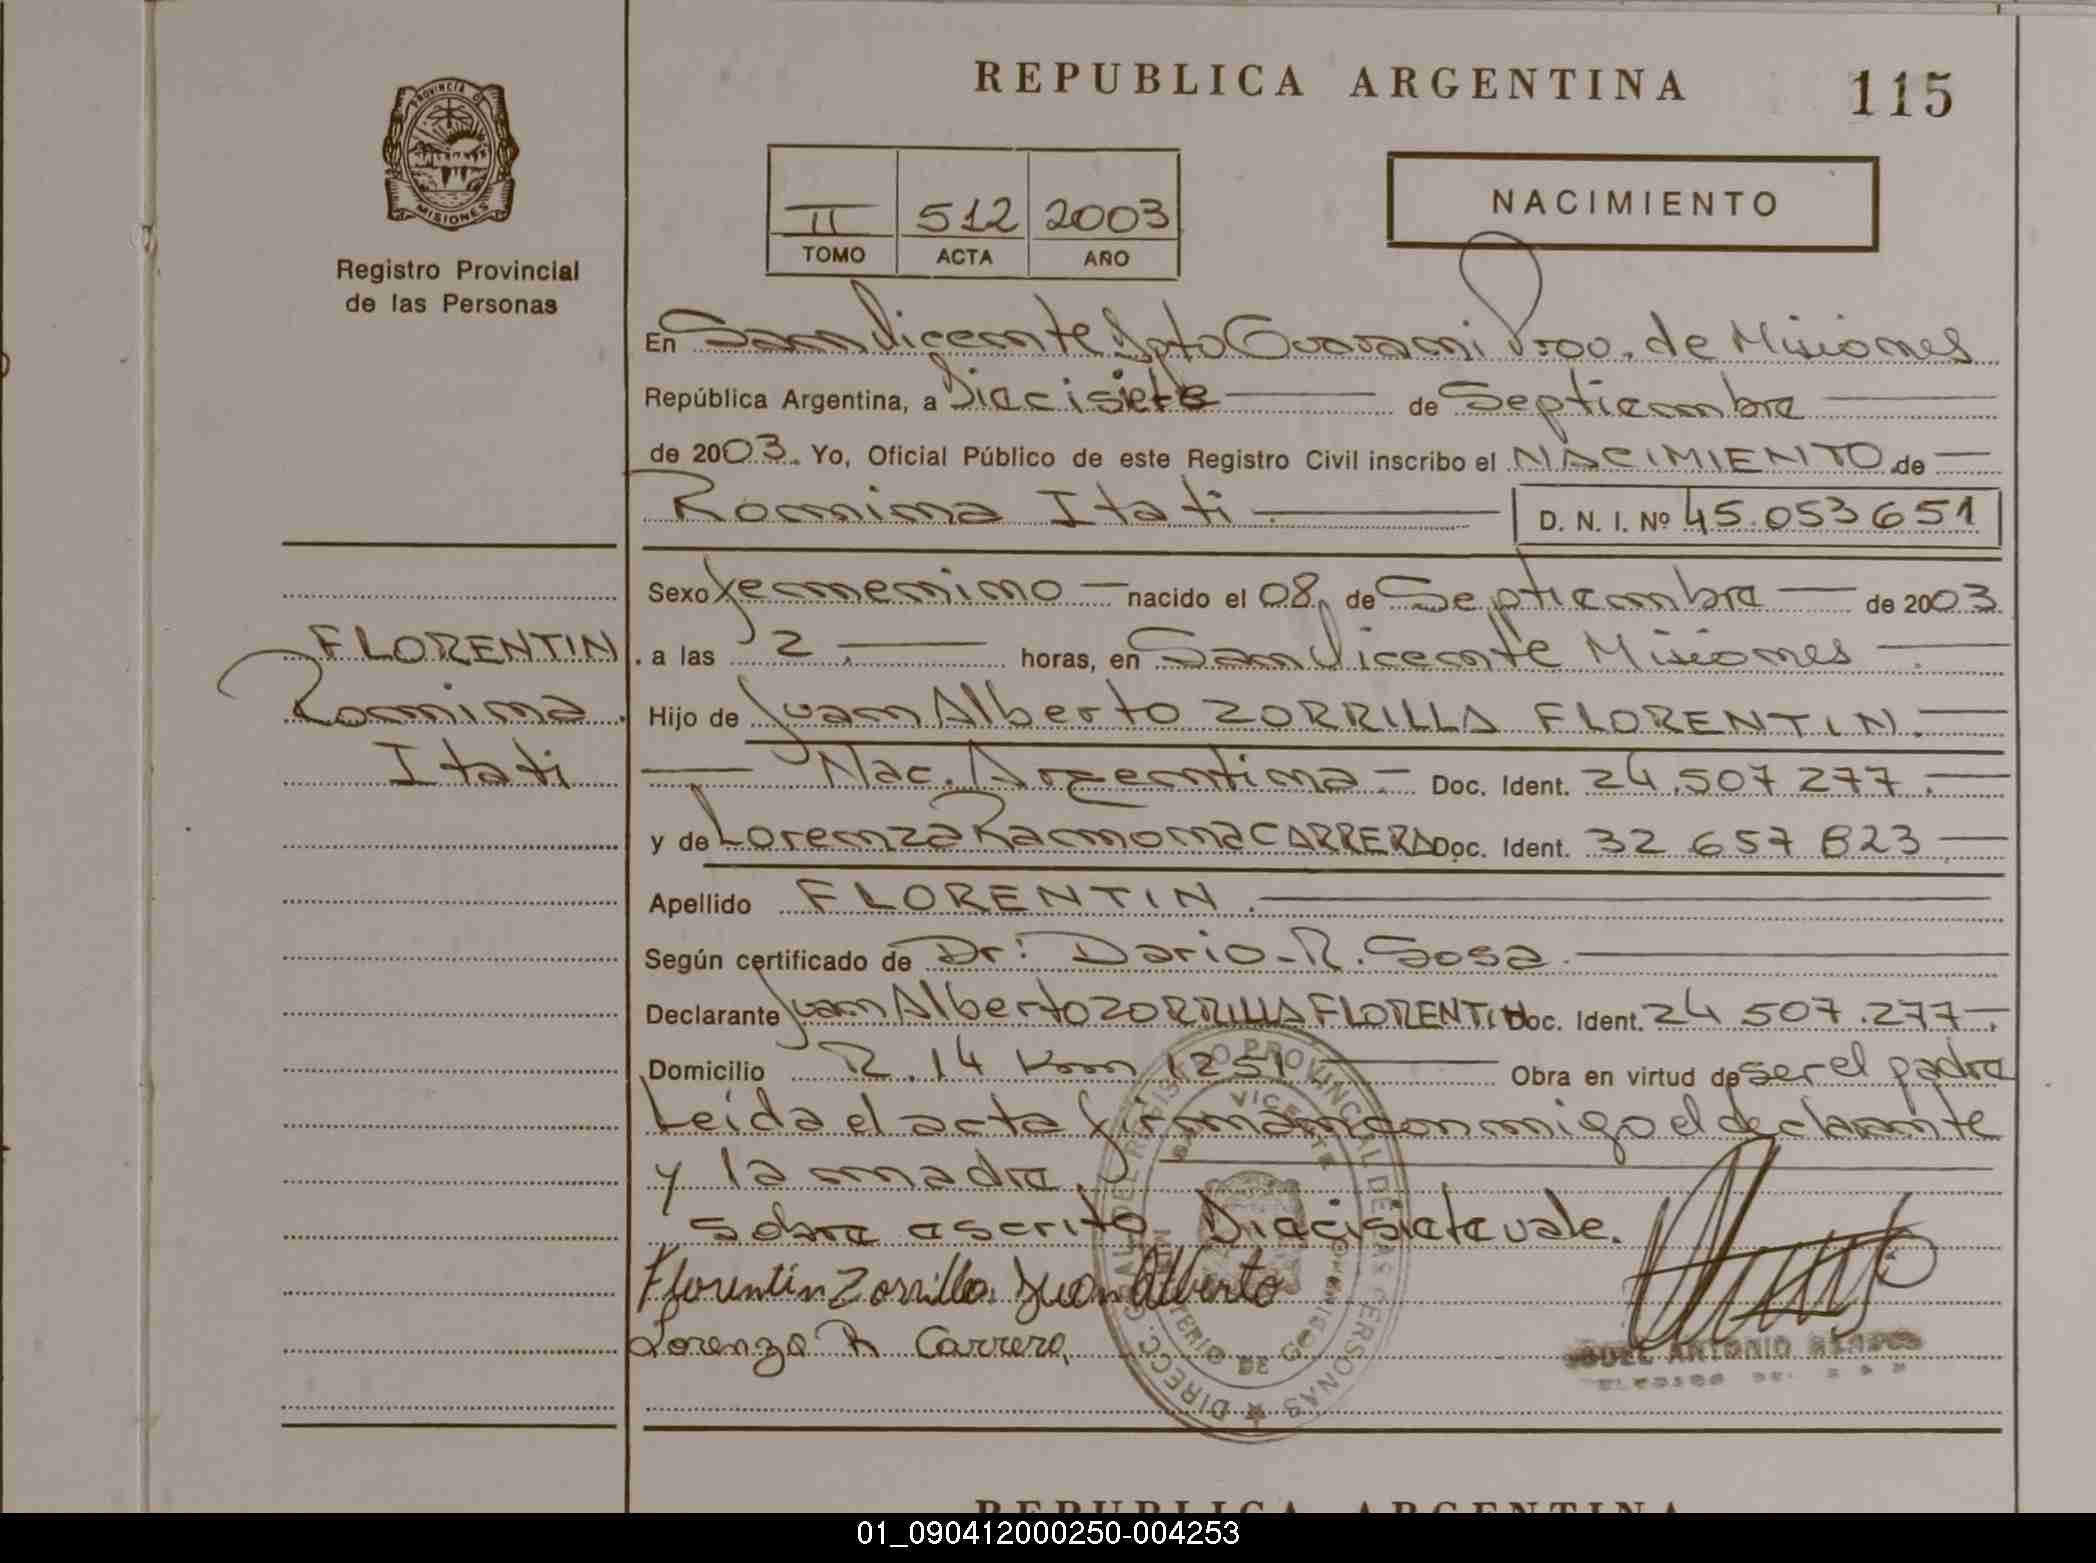 REPUBLICA ARGENTINA
115
PROVINCIA D
MISIONES
Registro Provincial
de las Personas
II 512 2003
TOMO ACTA AÑO
NACIMIENTO
En San Vicente Dpto Guarani Prov. de Misiones
República Argentina, a Diecisiete de Septiembre
de 2003. Yo, Oficial Público de este Registro Civil inscribo el NACIMIENTO de
Romina Itati D. N. I. Nº 45.053651
Sexo femenino nacido el 08 de Septiembre de 2003
FLORENTIN
Romina
Itati
a las 2 horas, en San Vicente Misiones
Hijo de Juan Alberto ZORRILLA FLORENTIN.
Nac. Argentina Doc. Ident. 24.507 277.
y de Lorenza Ramona CARRERA Doc. Ident. 32 657 823
Apellido FLORENTIN.
Según certificado de Dr: Dario R. Sosa.
Declarante Juan Alberto ZORRILLA FLORENTIN Doc. Ident. 24 507.277
Domicilio R. 14 Km 1251 Obra en virtud de ser el padre
Leida el acta firman conmigo el declarante
y la madre.
Sobre escrito Diecisiete vale.
Florentín Zorrilla Juan Alberto
Lorenza R Carrera
ANTONIO
DIRECC. GRAL DEL REGISTRO PROVINCIAL DE LAS PERSONAS
VICENTE
MINISTERIO DE GOBIERNO
REPUBLICA ARGENTINA
01_090412000250-004253